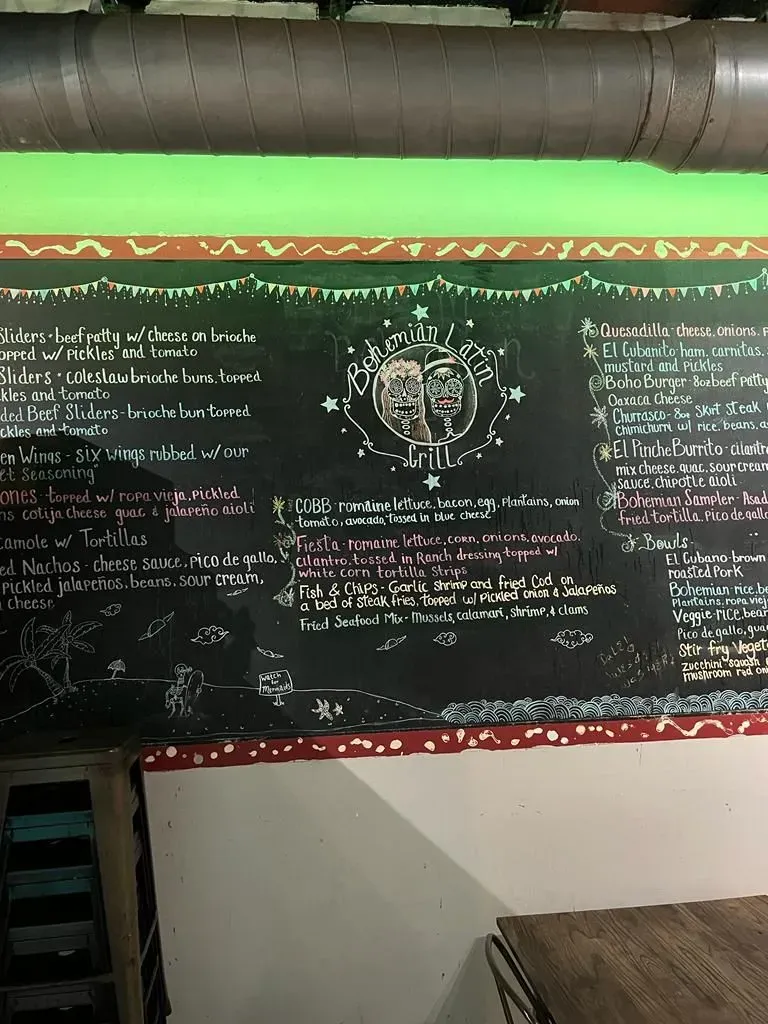 Sliders - beef patty w/ cheese on brioche
opped w/ pickles and tomato
Sliders - coleslaw brioche buns, topped
ckles and tomato
ded Beef Sliders - brioche bun topped
ckles and tomato
en Wings - six wings rubbed w/ our
et Seasoning"
ones - topped w/ ropa vieja, pickled
ns cotija cheese guac & jalapeño aioli
camole w/ Tortillas
ed Nachos - cheese sauce, pico de gallo,
pickled jalapeños, beans, sour cream,
cheese
Bohemian Latin
Grill
COBB - romaine lettuce, bacon, egg, Plantains, onion
tomato, avocado, tossed in blue cheese
Fiesta - romaine lettuce, corn, onions, avocado,
cilantro, tossed in Ranch dressing topped w/
white corn tortilla strips
Fish & Chips - Garlic shrimp and fried Cod on
a bed of steak fries, topped w/ pickled onion & Jalapeños
Fried Seafood Mix - Mussels, calamari, shrimp, & clams
watch
for
Mermaids
Quesadilla - cheese, onions, P
El Cubanito - ham, carnitas,
mustard and pickles
Boho Burger - 8oz beef Patty
Oaxaca cheese
Churrasco - 8oz Skirt steak
Chimichurri w/ rice, beans, as
El Pinche Burrito - cilantr
mix cheese, guac, sour cream
sauce, chipotle aioli
Bohemian Sampler - Asad
fried tortilla, Pico de gallo
Bowls
El Cubano - brown
roasted Pork
Bohemian - rice, be
Plantains, ropa viej
Veggie - rice, bean
Pico de gallo, gua
Stir fry Veget
zucchini squash
mushroom red oni